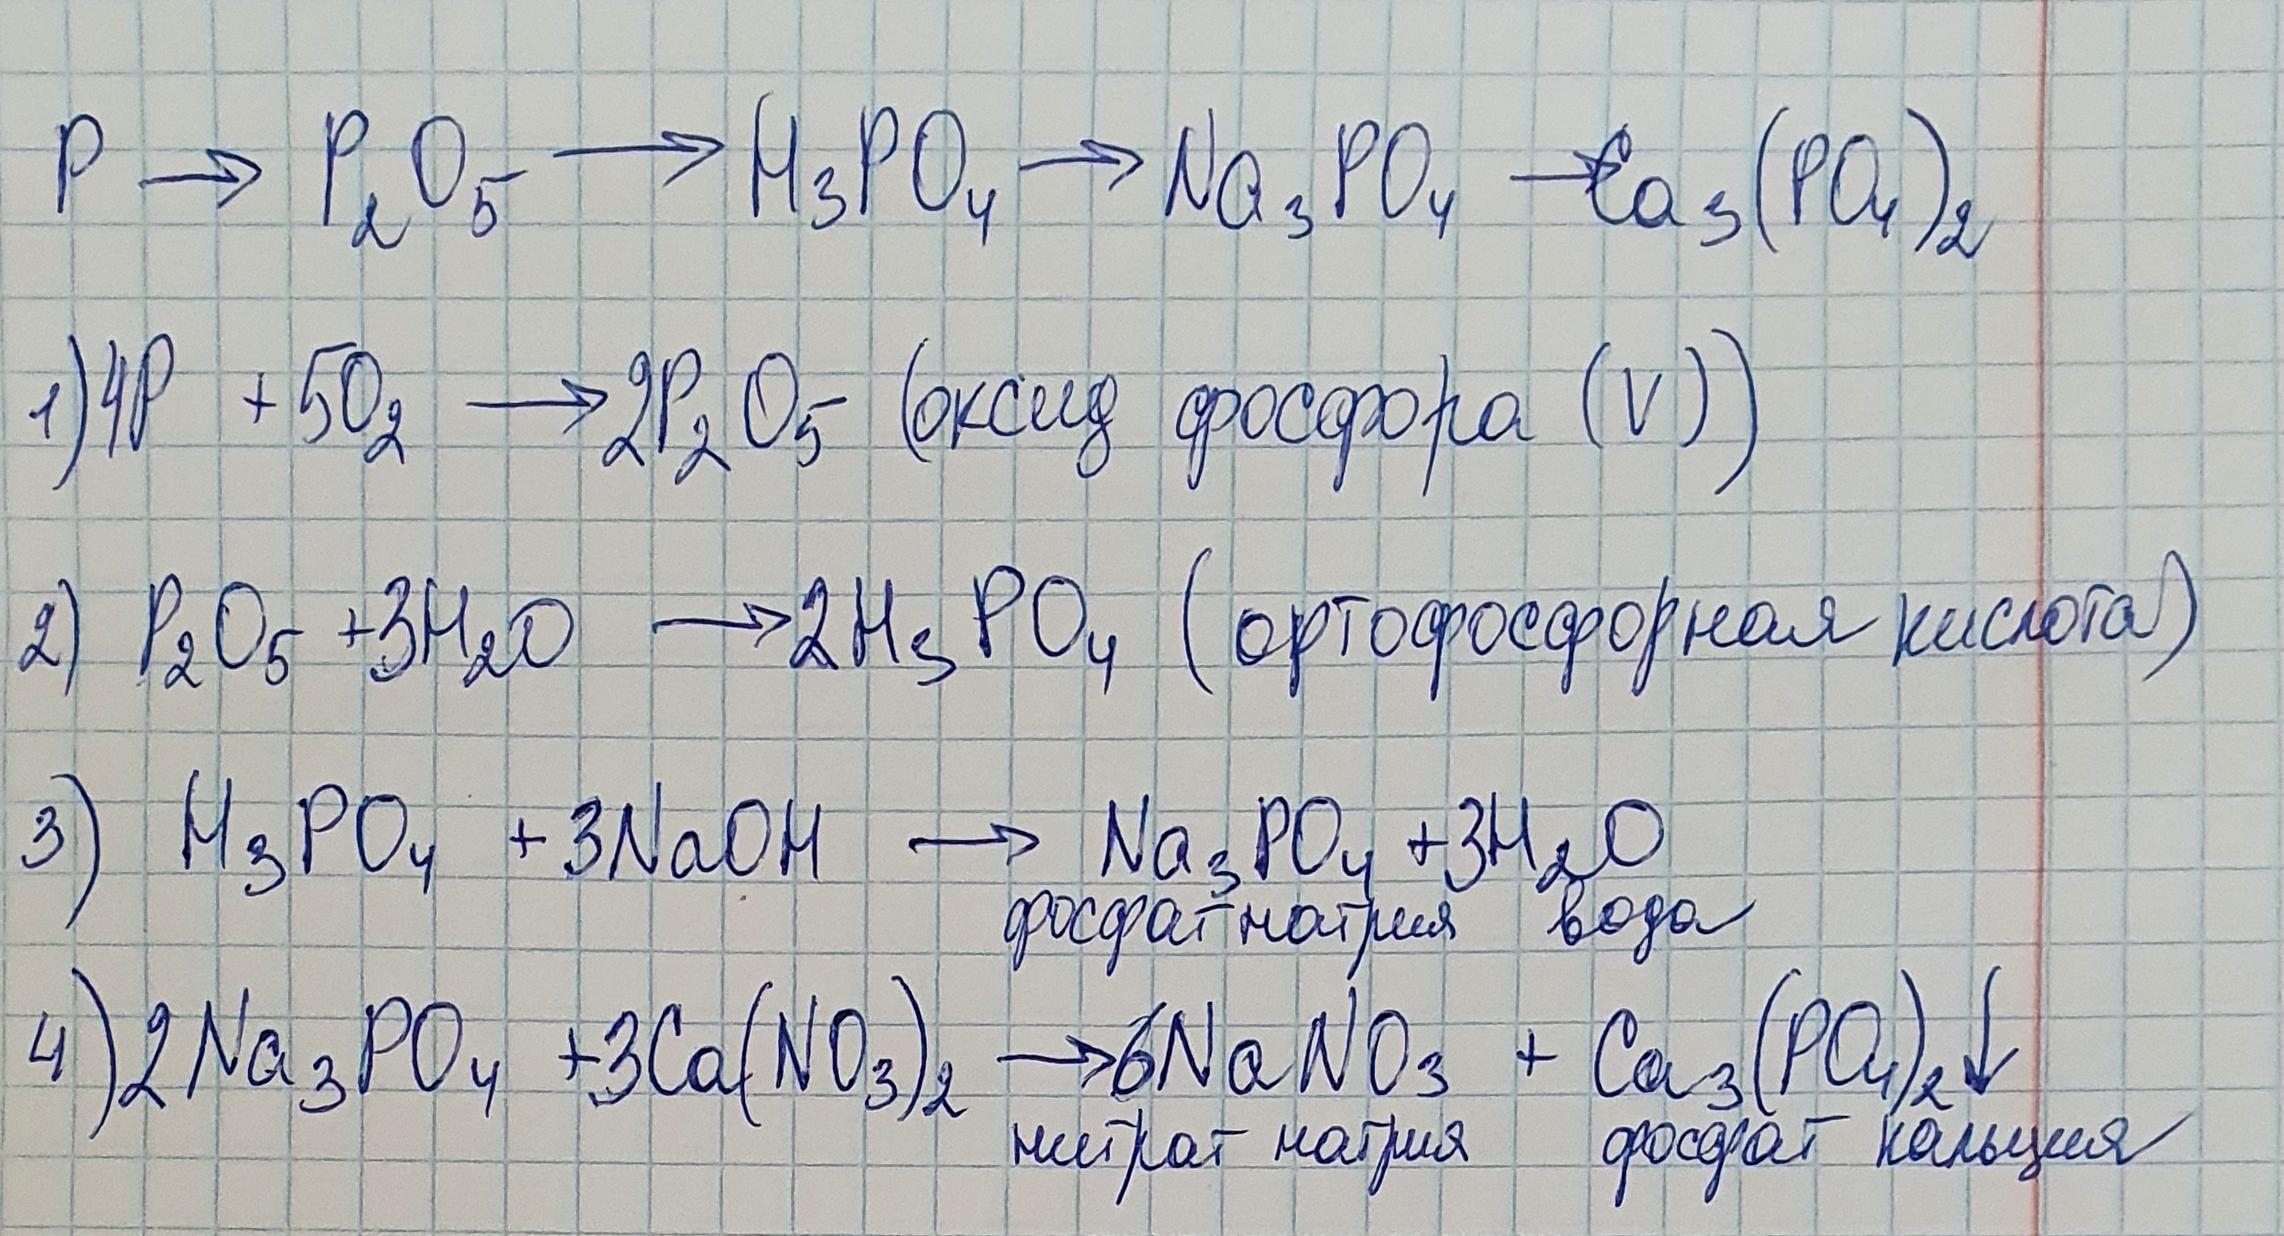 P → P₂O₅ → H₃PO₄ → Na₃PO₄ → Ca₃(PO₄)₂
1) 4P + 5O₂ → 2P₂O₅ (оксид фосфора (V))
2) P₂O₅ + 3H₂O → 2H₃PO₄ (ортофосфорная кислота)
3) H₃PO₄ + 3NaOH → Na₃PO₄ + 3H₂O
фосфат натрия вода
4) 2Na₃PO₄ + 3Ca(NO₃)₂ → 6NaNO₃ + Ca₃(PO₄)₂↓
нитрат натрия фосфат кальция